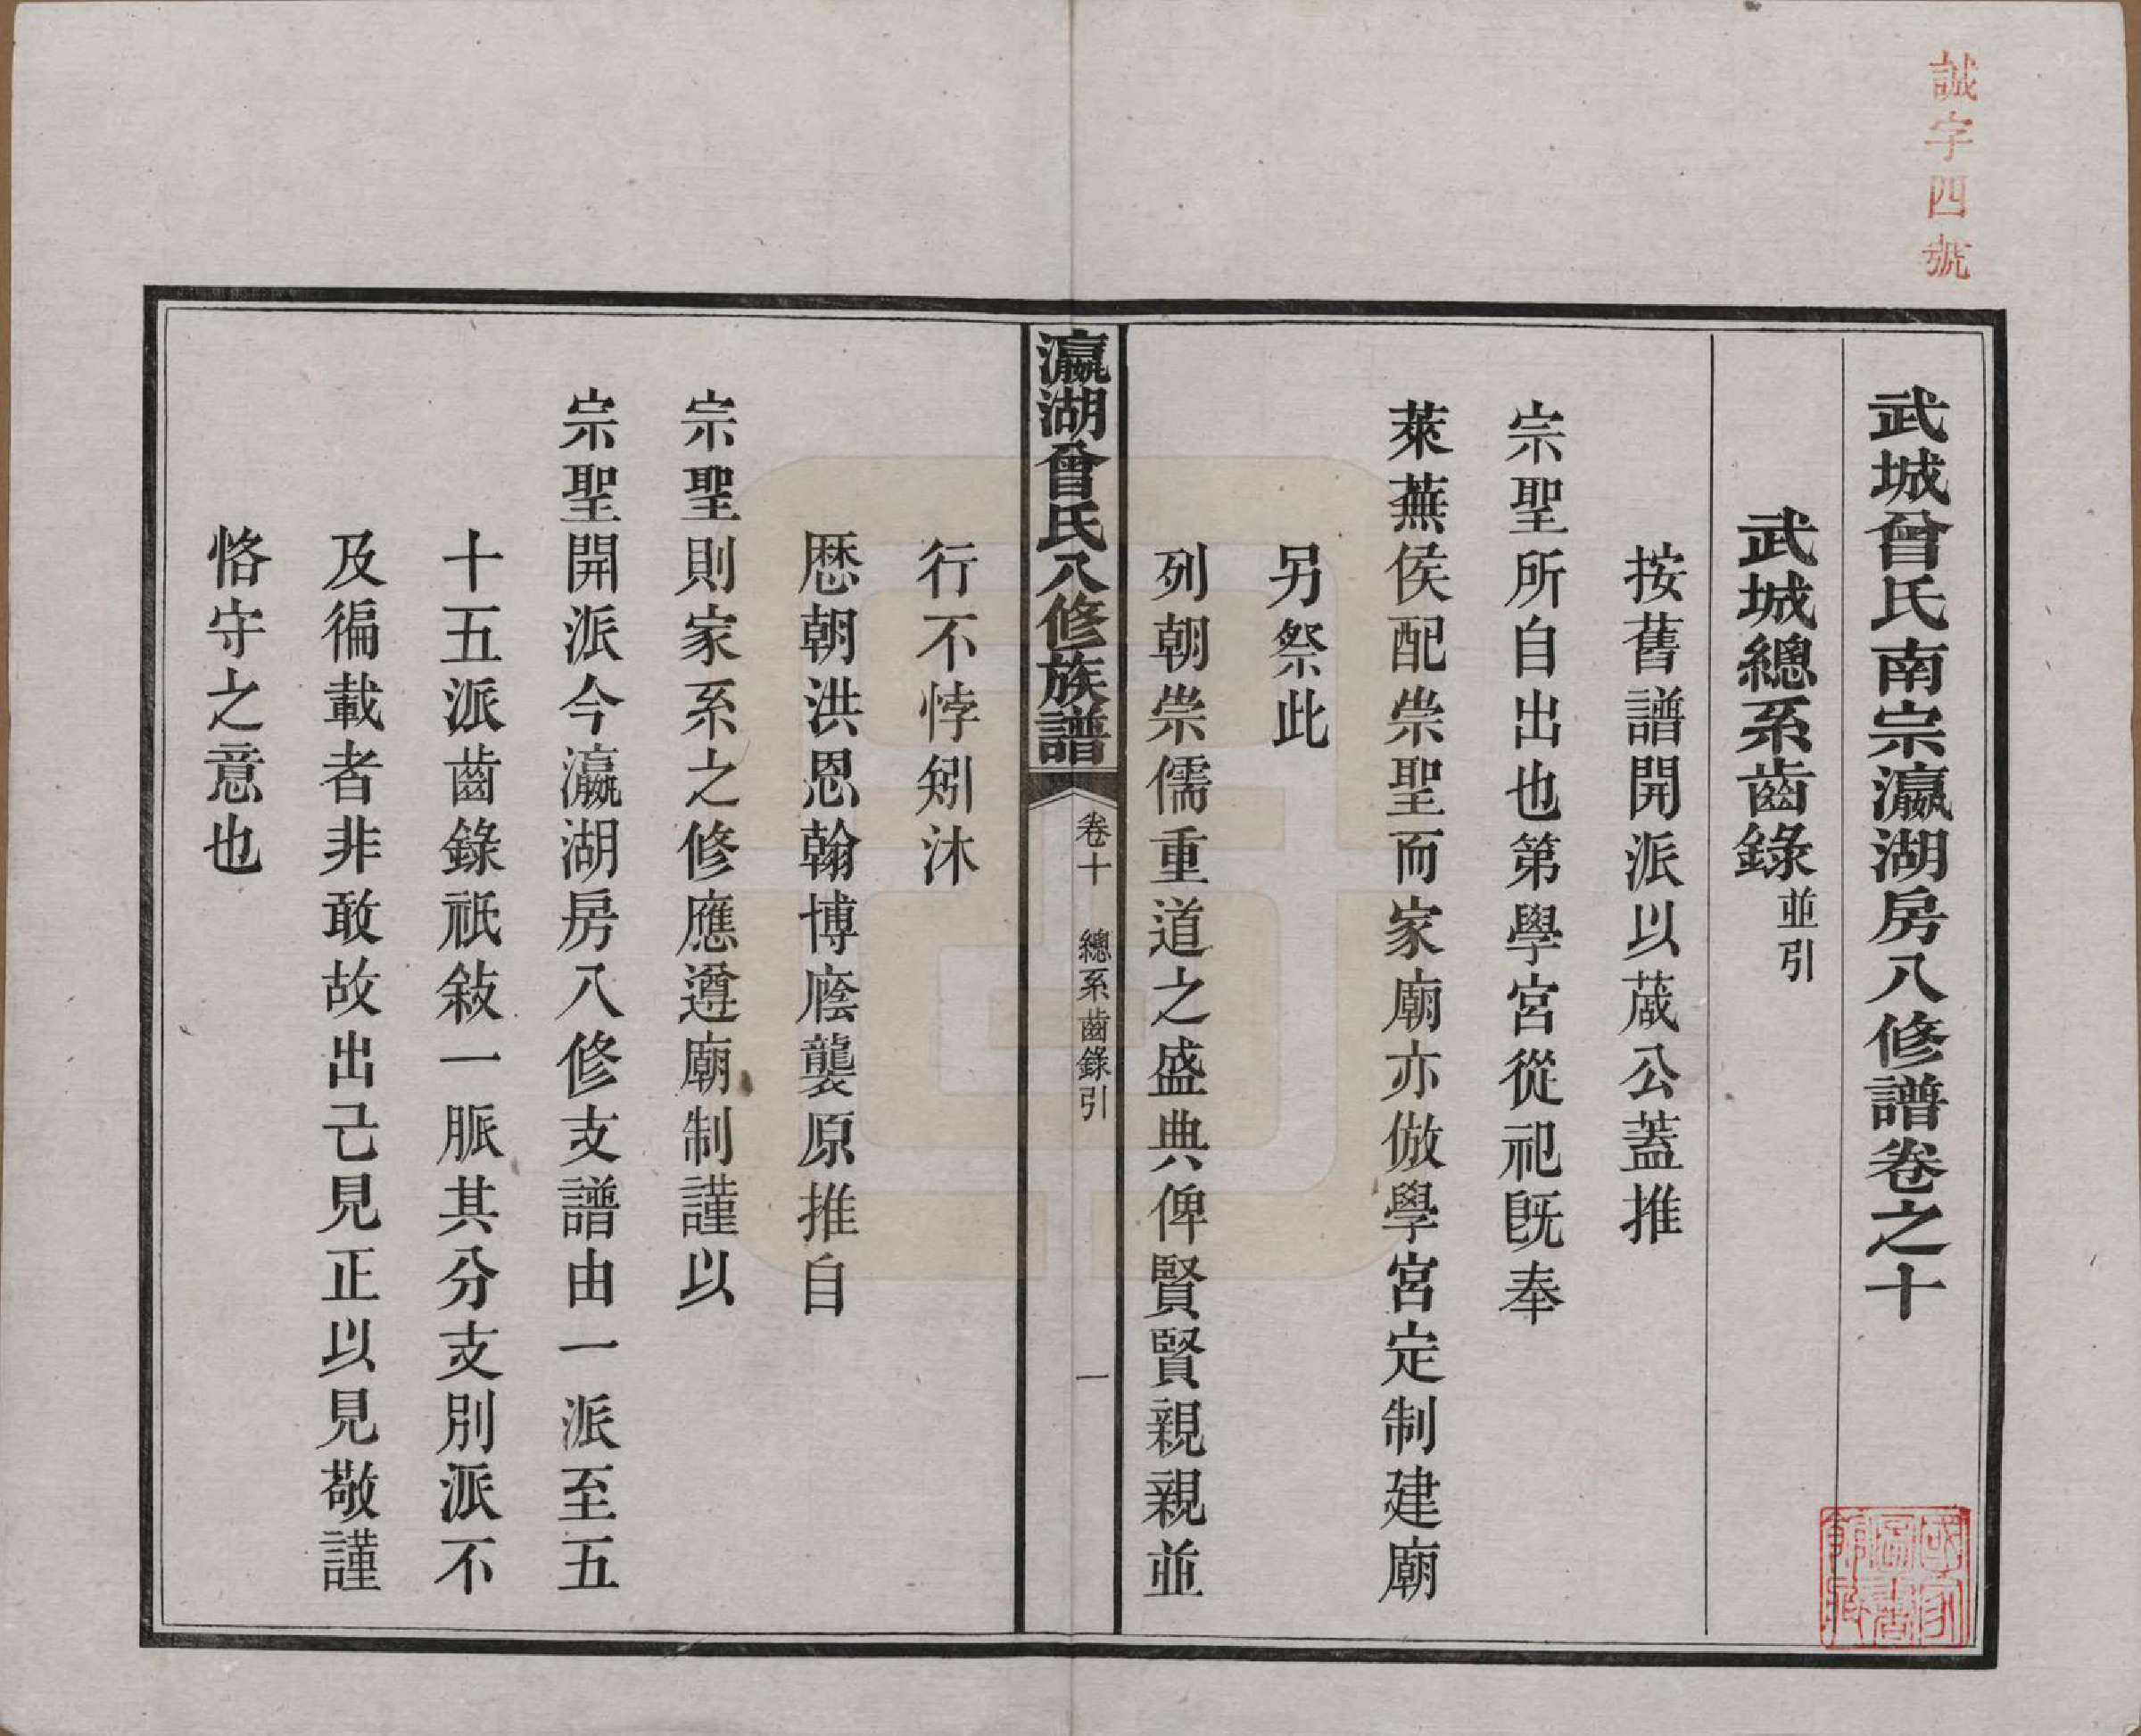 誠字四號
武城曾氏南宗瀛湖房八修譜卷之十
武城總系齒錄並引
按舊譜開派以蒧公蓋推
宗聖所自出也第學宮從祀旣奉
萊蕪侯配祟聖而家廟亦倣學宮定制建廟
另祭此
列朝祟儒重道之盛典俾賢賢親親並
瀛湖曾氏八修族譜
卷十
總系齒錄引
一
行不悖矧沐
歷朝洪恩翰博廕襲原推自
宗聖則家系之修應遵廟制謹以
宗聖開派今瀛湖房八修支譜由一派至五
十五派齒錄祇敍一脈其分支別派不
及徧載者非敢故出己見正以見敬謹
恪守之意也
國家圖書館藏